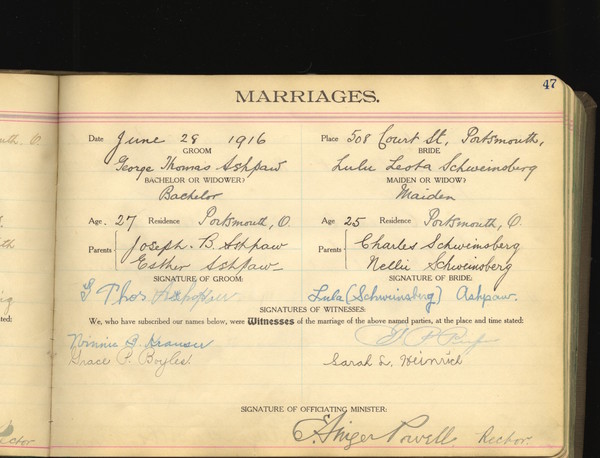 47
MARRIAGES.
Date June 28 1916 Place 508 Court St, Portsmouth,
GROOM BRIDE
George Thomas Ashpaw Lulu Leota Schweinsberg
BACHELOR OR WIDOWER? MAIDEN OR WIDOW?
Bachelor Maiden
Age. 27 Residence Portsmouth, O. Age 25 Residence Portsmouth, O.
Parents Joseph. B. Ashpaw Parents Charles Schweinsberg
Esther Ashpaw Nellie Schweinsberg
SIGNATURE OF GROOM: SIGNATURE OF BRIDE:
G Thos Ashpaw Lula (Schweinsberg) Ashpaw.
SIGNATURES OF WITNESSES:
We, who have subscribed our names below, were Witnesses of the marriage of the above named parties, at the place and time stated:
Grace P. Boyles.
Sarah L. Heinrich
SIGNATURE OF OFFICIATING MINISTER:
E. Ainger Powell. Rector.